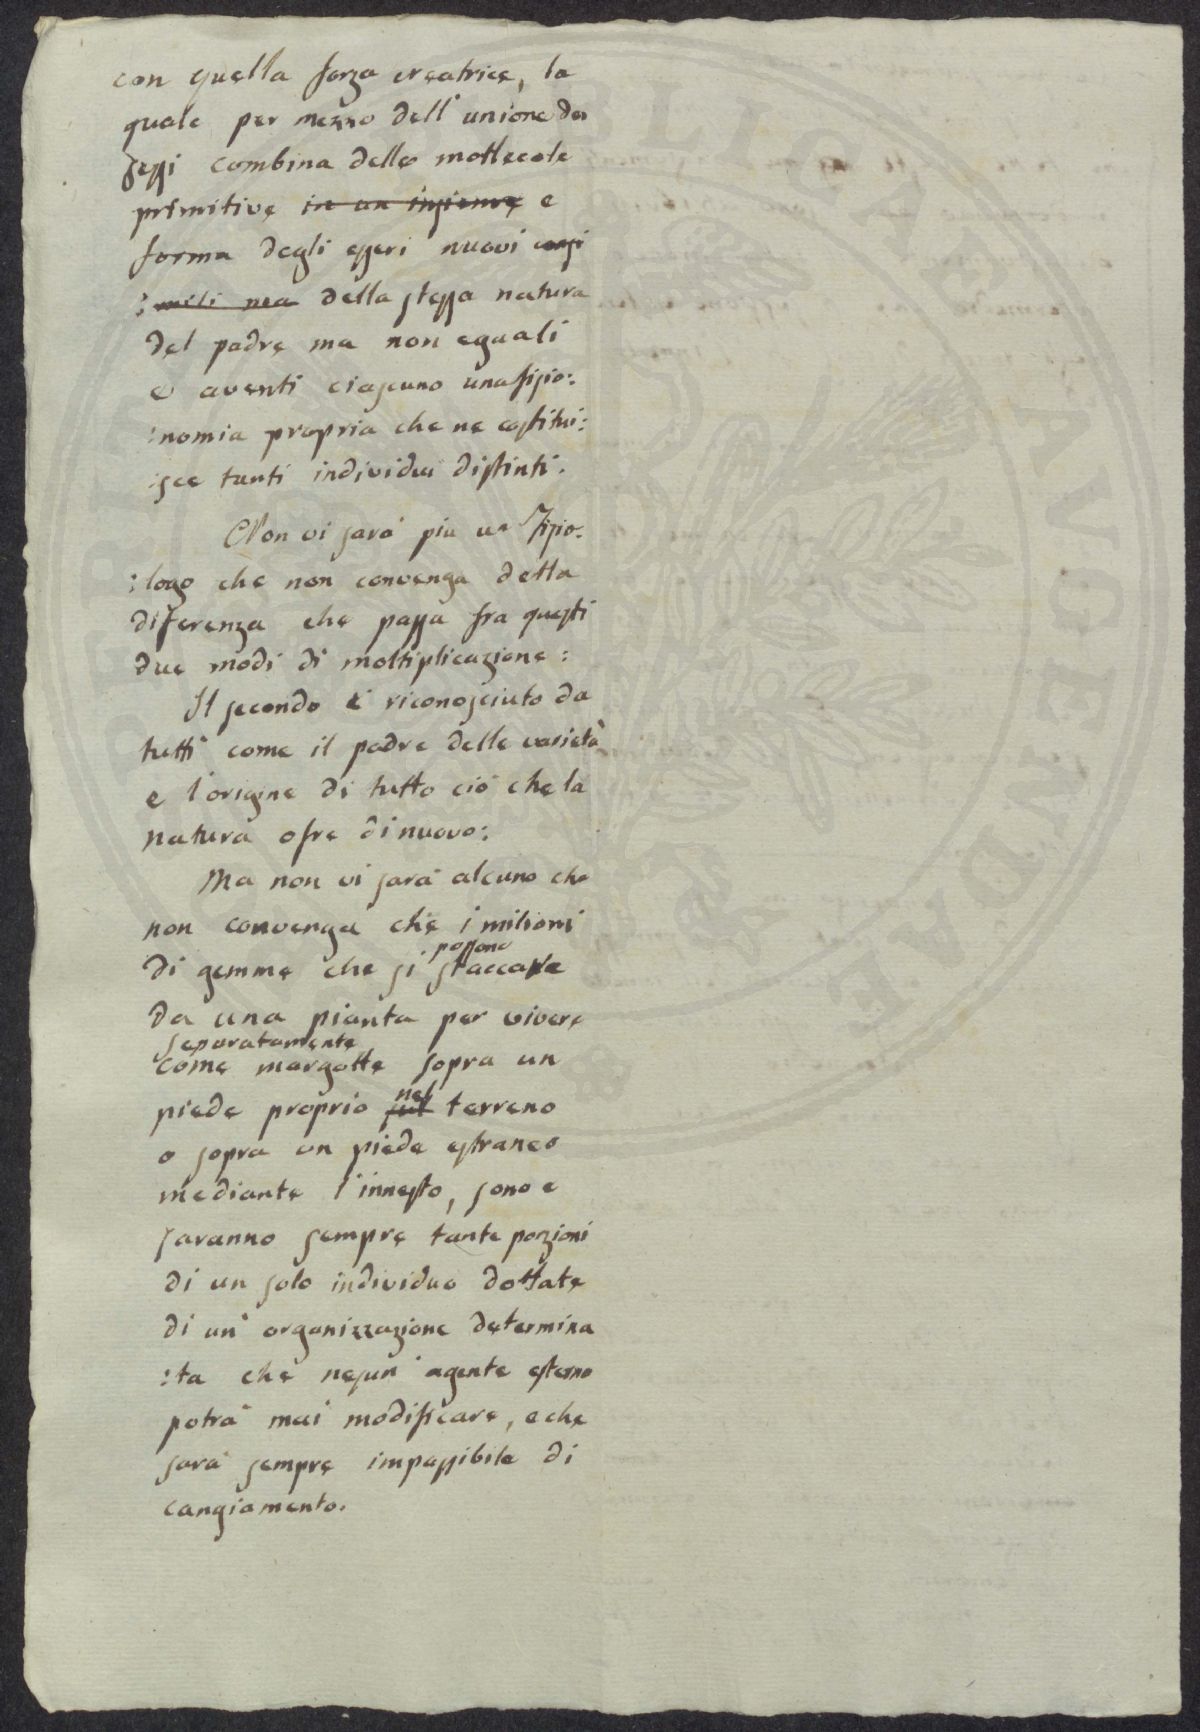 con quella forza creatrice, la
quale per mezzo dell'unione dei
sessi combina delle mollecole
primitive in un insieme e
forma degli esseri nuovi consi
:mili ma della stessa natura
del padre ma non eguali
e aventi ciascuno una fisio:
:nomia propria che ne costitui:
:sce tanti individui distinti.
Non vi sarà più un Fisio:
:logo che non convenga della
diferenza che passa fra questi
due modi di moltiplicazione:
Il secondo è riconosciuto da
tutti come il padre delle varietà
e l'origine di tutto ciò che la
natura ofre di nuovo:
Ma non vi sarà alcuno che
non convenga che i milioni
possono
di gemme che si staccare
da una pianta per vivere
separatamente
come margotte sopra un
nel
piede proprio sul terreno
o sopra un piede estraneo
mediante l'innesto, sono e
saranno sempre tante porzioni
di un solo individuo dottate
di un' organizzazione determina
:ta che nesun agente esterno
potrà mai modificare, e che
sarà sempre impassibile di
cangiamento.